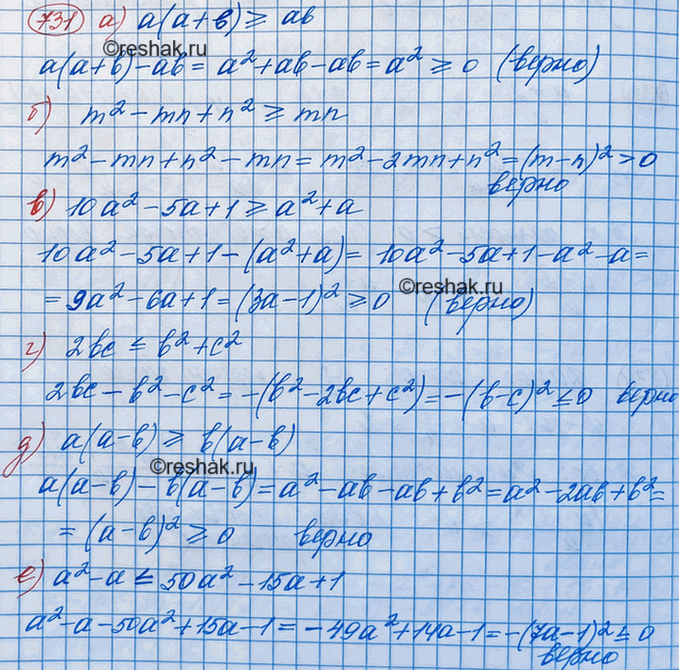 731 а) a(a+b) ≥ ab
©reshak.ru
a(a+b)-ab = a²+ab-ab = a² ≥ 0 (верно)
б) m²-mn+n² ≥ mn
m²-mn+n²-mn = m²-2mn+n² = (m-n)² >0
верно
в) 10a²-5a+1 ≥ a²+a
10a²-5a+1-(a²+a) = 10a²-5a+1-a²-a =
©reshak.ru
= 9a²-6a+1 = (3a-1)² ≥ 0 (верно)
г) 2bc ≤ b²+c²
2bc-b²-c² = -(b²-2bc+c²) = -(b-c)² ≤ 0 верно
д) a(a-b) ≥ b(a-b)
©reshak.ru
a(a-b)-b(a-b) = a²-ab-ab+b² = a²-2ab+b² =
= (a-b)² ≥ 0 верно
е) a²-a ≤ 50a²-15a+1
a²-a-50a²+15a-1 = -49a²+14a-1 = -(7a-1)² ≤ 0
верно